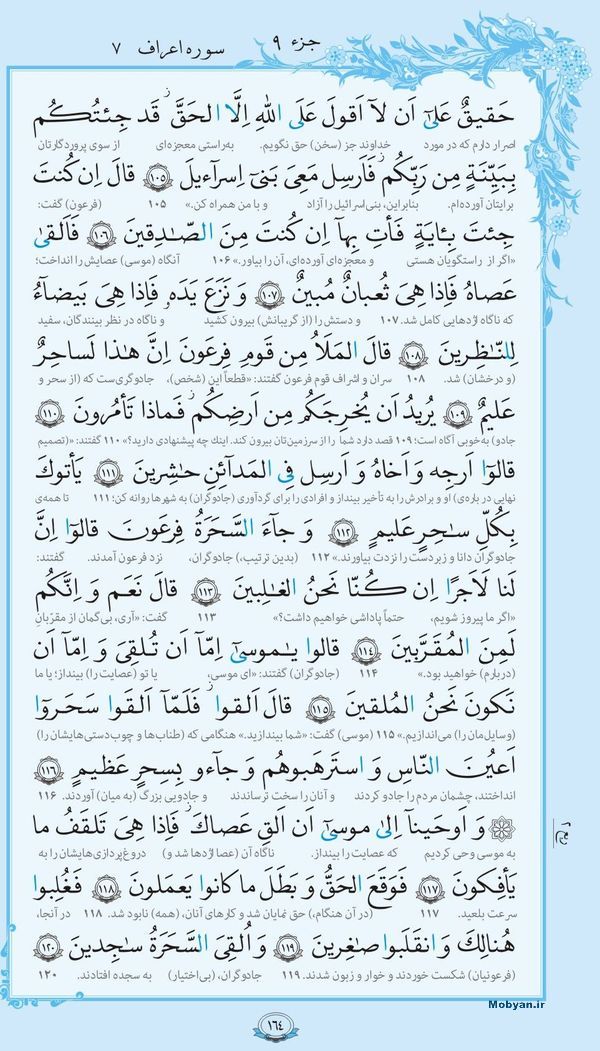 جزء ۹
سوره اعراف ۷
حَقيقٌ عَلىٰٓ اَن لآ اَقولَ عَلَى اللهِ اِلَّا الحَقَّ ۚ قَد جِئتُكُم
اصرار دارم که در مورد خداوند جز (سخن) حق نگویم. به‌راستی معجزه‌ای از سوی پروردگارتان
بِبَيِّنَةٍ مِن رَبِّكُم فَاَرسِل مَعِىَ بَنىٓ اِسرآءيلَ ﴿١٠٥﴾ قالَ اِن كُنتَ
برایتان آورده‌ام. بنابراین، بنی‌اسرائیل را آزاد و با من همراه کن.» ۱۰۵ (فرعون) گفت:
جِئتَ بِـٔايَةٍ فَأتِ بِهآ اِن كُنتَ مِنَ الصّـٰدِقينَ ﴿١٠٦﴾ فَاَلقىٰ
«اگر از راستگویان هستی و معجزه‌ای آورده‌ای، آن را بیاور.» ۱۰۶ آنگاه (موسی) عصایش را انداخت؛
عَصاهُ فَاِذا هِىَ ثُعبانٌ مُبينٌ ﴿١٠٧﴾ وَ نَزَعَ يَدَهو فَاِذا هِىَ بَيضآءُ
که ناگاه اژدهایی کامل شد. ۱۰۷ و دستش را (از گریبانش) بیرون کشید و ناگاه در نظر بینندگان، سفید
لِلنّـٰظِرينَ ﴿١٠٨﴾ قالَ المَلَأُ مِن قَومِ فِرعَونَ اِنَّ هـٰذا لَساحِرٌ
(و درخشان) شد. ۱۰۸ سران و اشراف قوم فرعون گفتند: «قطعاً این (شخص)، جادوگری‌ست که (از سحر و
عَليمٌ ﴿١٠٩﴾ يُريدُ اَن يُخرِجَكُم مِن اَرضِكُم ۖ فَماذا تَأمُرونَ ﴿١١٠﴾
جادو) به‌خوبی آگاه است؛ ۱۰۹ قصد دارد شما را از سرزمین‌تان بیرون کند. اینك چه پیشنهادی دارید؟» ۱۱۰ گفتند: «(تصمیم
قالوٓا اَرجِه وَ اَخاهُ وَ اَرسِل فِى المَدآئِنِ حـٰشِرينَ ﴿١١١﴾ يَأتوكَ
نهایی در باره‌ی) او و برادرش را به تأخیر بینداز و افرادی را برای گردآوری (جادوگران) به شهرها روانه کن؛ ۱۱۱ تا همه‌ی
بِكُلِّ سـٰحِرٍ عَليمٍ ﴿١١٢﴾ وَ جآءَ السَّحَرَةُ فِرعَونَ قالوٓا اِنَّ
جادوگران دانا و زبردست را نزدت بیاورند.» ۱۱۲ (بدین ترتیب،) جادوگران، نزد فرعون آمدند. گفتند:
لَنا لَاَجرًا اِن كُنّا نَحنُ الغـٰلِبينَ ﴿١١٣﴾ قالَ نَعَم وَ اِنَّكُم
«اگر ما پیروز شویم، حتماً پاداشی خواهیم داشت؟» ۱۱۳ گفت: «آری، بی‌گمان از مقرّبان
لَمِنَ المُقَرَّبينَ ﴿١١٤﴾ قالوا يـٰموسىٰٓ اِمّآ اَن تُلقِىَ وَ اِمّآ اَن
(دربارم) خواهید بود.» ۱۱۴ (جادوگران) گفتند: «ای موسی، یا تو (عصایت را) بینداز؛ یا ما
نَكونَ نَحنُ المُلقينَ ﴿١١٥﴾ قالَ اَلقوا ۖ فَلَمّآ اَلقَوا سَحَروٓا
(وسایل‌مان را) می‌اندازیم.» ۱۱۵ (موسی) گفت: «شما بیندازید.» هنگامی که (طناب‌ها و چوب‌دستی‌هایشان را)
اَعيُنَ النّاسِ وَ استَرهَبوهُم وَ جآءو بِسِحرٍ عَظيمٍ ﴿١١٦﴾
انداختند، چشمان مردم را جادو کردند و آنان را سخت ترساندند و جادویی بزرگ (به میان) آوردند. ۱۱۶
۞ وَ اَوحَينآ اِلىٰ موسىٰٓ اَن اَلقِ عَصاكَ ۖ فَاِذا هِىَ تَلقَفُ ما
به موسی وحی کردیم که عصایت را بینداز. ناگاه آن (عصا اژدها شد و) دروغ‌پردازی‌هایشان را به
يَأفِكونَ ﴿١١٧﴾ فَوَقَعَ الحَقُّ وَ بَطَلَ ما كانوا يَعمَلونَ ﴿١١٨﴾ فَغُلِبوا
سرعت بلعید. ۱۱۷ (در آن هنگام،) حق نمایان شد و کارهای آنان، (همه) نابود شد. ۱۱۸ در آنجا،
هُنالِكَ وَ انقَلَبوا صـٰغِرينَ ﴿١١٩﴾ وَ اُلقِىَ السَّحَرَةُ سـٰجِدينَ ﴿١٢٠﴾
(فرعونیان) شکست خوردند و خوار و زبون شدند. ۱۱۹ جادوگران، (بی‌اختیار) به سجده افتادند. ۱۲۰
Mobyan.ir
١٦٤